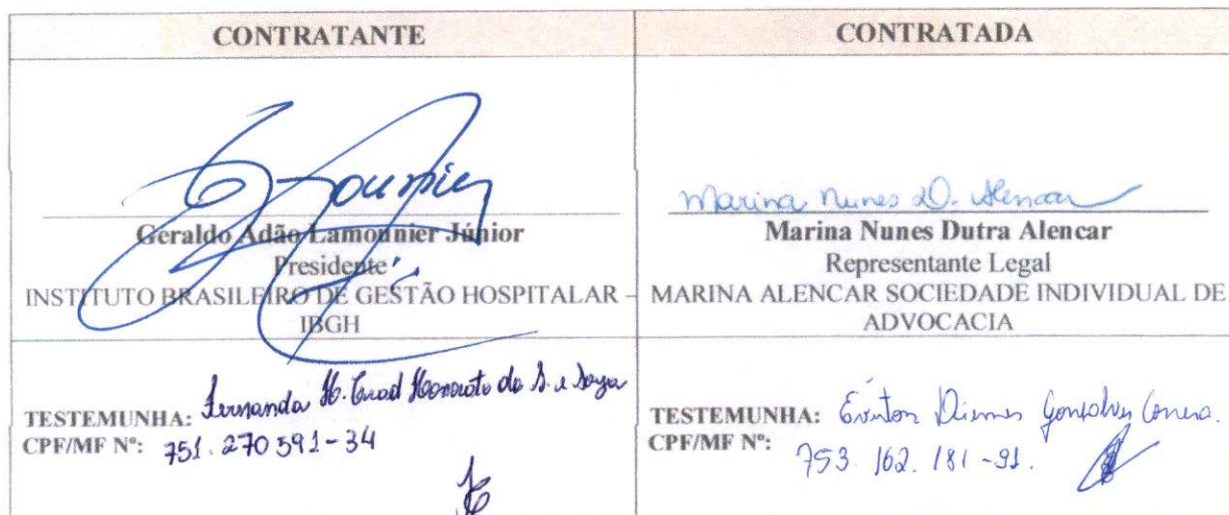 CONTRATANTE
CONTRATADA
Geraldo Adão Lamounier Júnior
Presidente
INSTITUTO BRASILEIRO DE GESTÃO HOSPITALAR –
IBGH
Marina Nunes D. Alencar
Marina Nunes Dutra Alencar
Representante Legal
MARINA ALENCAR SOCIEDADE INDIVIDUAL DE
ADVOCACIA
TESTEMUNHA: Fernanda H. Honorato de S. e Souza
CPF/MF Nº: 751.270591-34
TESTEMUNHA: Gonçalves
CPF/MF Nº: 753.162.181-91.